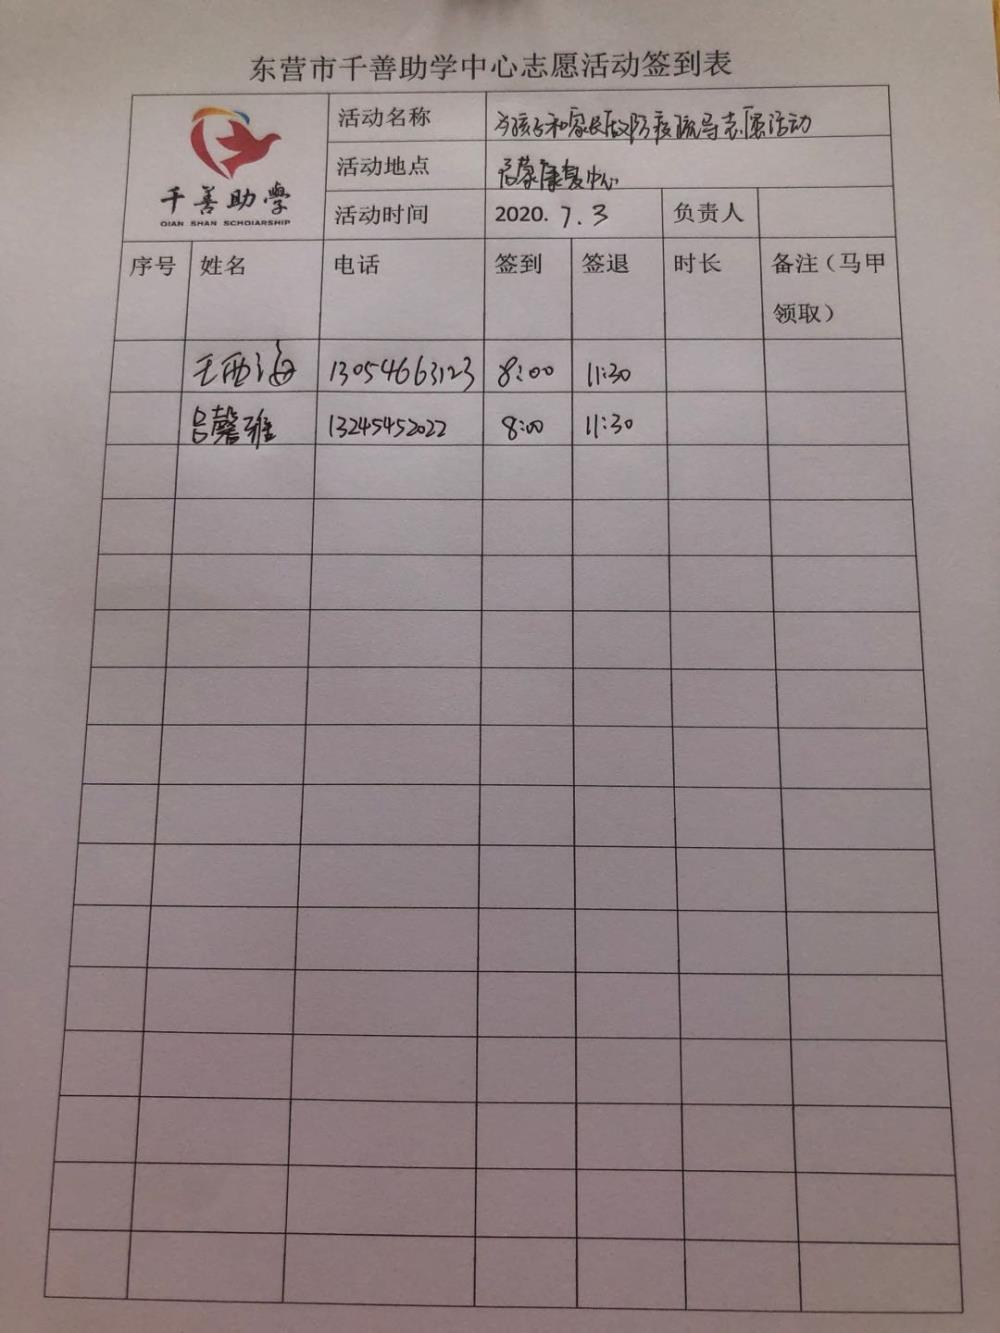 东营市千善助学中心志愿活动签到表
千善助學
QIAN SHAN SCHOIARSHIP
活动名称 为孩子和家长做防疫疏导志愿活动
活动地点 启蒙康复中心
活动时间 2020.7.3 负责人
序号 姓名 电话 签到 签退 时长 备注（马甲
领取）
王西海 13054663123 8:00 11:30
吕馨雅 13245452022 8:00 11:30